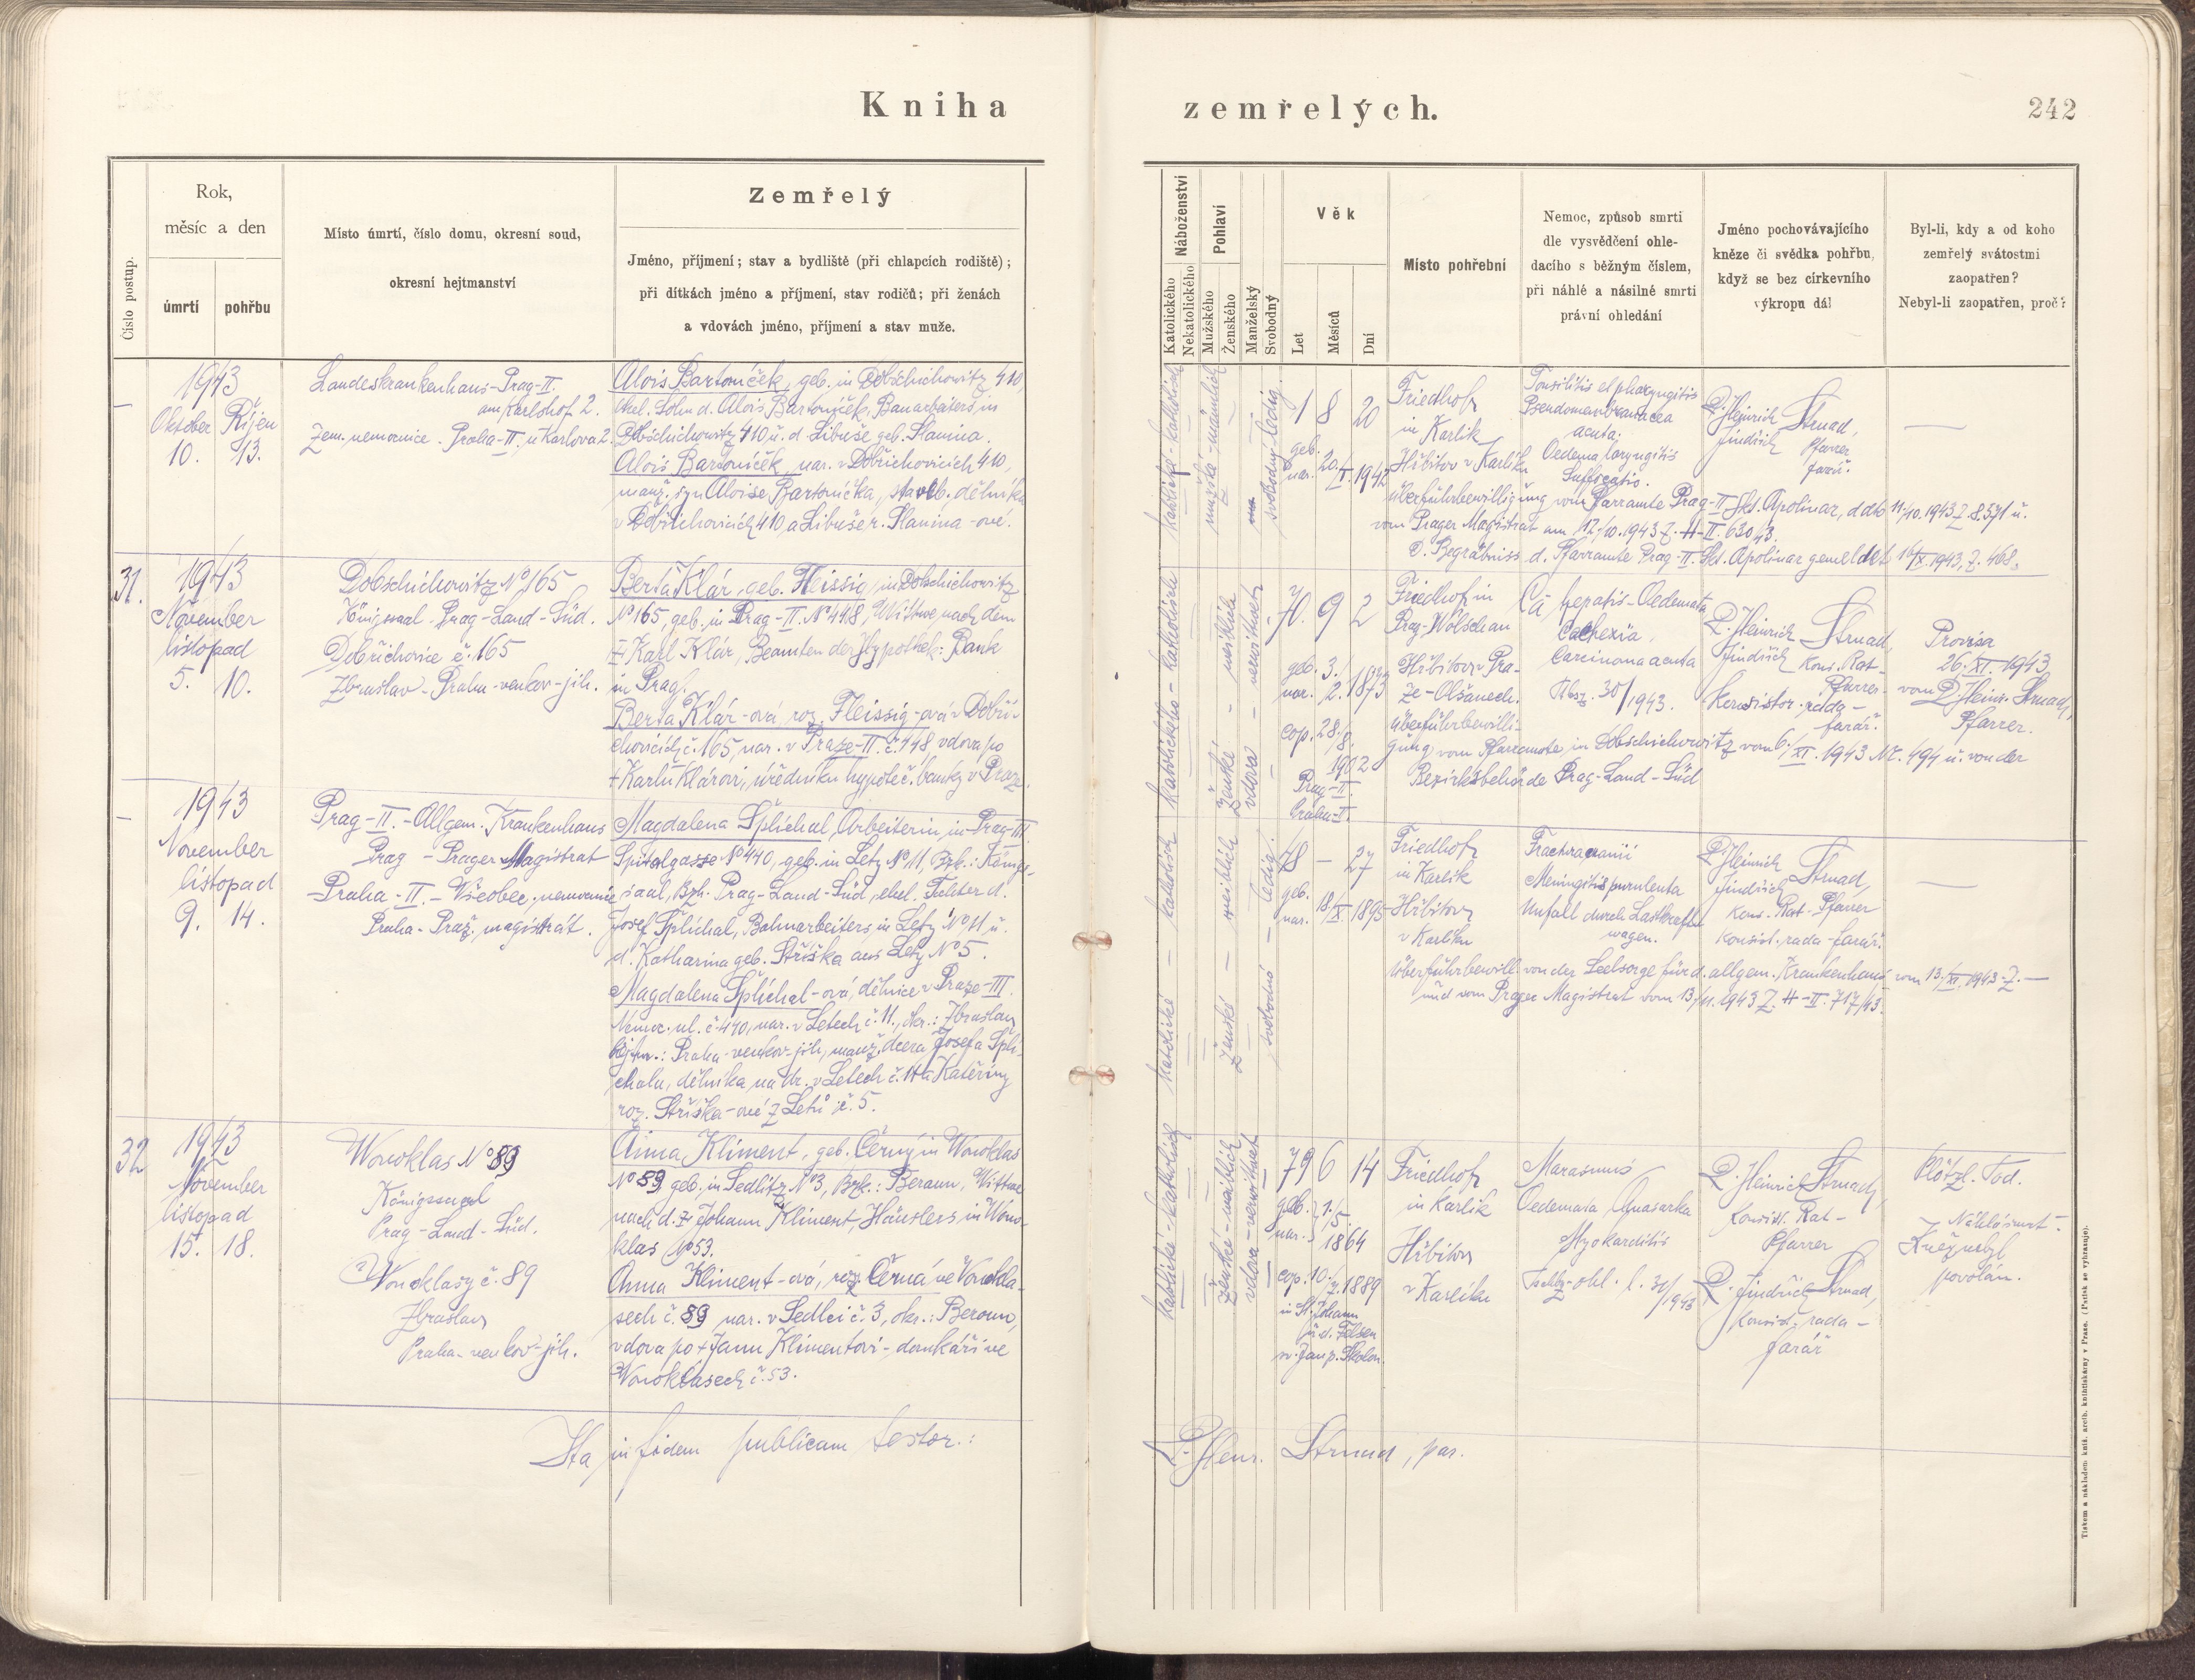 Kniha
zemřelých.
242
Číslo postup.
Rok,
měsíc a den
úmrtí
pohřbu
Místo úmrtí, číslo domu, okresní soud,
okresní hejtmanství
Zemřelý
Jméno, příjmení; stav a bydliště (při chlapcích rodiště);
při dítkách jméno a příjmení, stav rodičů; při ženách
a vdovách jméno, příjmení a stav muže.
Náboženství
Katolického
Nekatolického
Pohlaví
Mužského
Ženského
Manželský
Svobodný
Věk
Let
Měsíců
Dní
Místo pohřební
Nemoc, způsob smrti
dle vysvědčení ohle-
dacího s běžným číslem,
při náhlé a násilné smrti
právní ohledání
Jméno pochovávajícího
kněze či svědka pohřbu,
když se bez církevního
výkropu dál
Byl-li, kdy a od koho
zemřelý svátostmi
zaopatřen?
Nebyl-li zaopatřen, proč?
1943
Oktober Říjen
10. 13.
Landeskrankenhaus-Prag-II.
am Karlshof 2.
Zem. nemocnice - Praha-II. u Karlova 2.
Alois Bartoníček, geb. in Dobschichowitz 410,
ehel. Sohn d. Alois Bartoníček, Bauarbeiters in
Dobschichowitz 410 u. d. Libuše geb. Slanina.
Alois Bartoníček, nar. v Dobřichovicích 410,
manž. syn Aloise Bartoníčka, staveb. dělníka
v Dobřichovicích 410 a Libuše r. Slanina-ové.
katolické - katholisch
mužské - männlich
svobodný - ledig.
1 8 20
geb.
nar. 20./I. 1942
Friedhof
in Karlik
Hřbitov v Karlíku
Tonsilitis et pharyngitis
Pseudomembranacea
acuta.
Oedema laryngitis
Suffocatio.
P. Heinrich Strnad,
Jindřich Pfarrer
farář.
Überführbewilligung vom Pfarramte Prag-II Skt. Apolinar, ddto 11/10. 1943 Z. 8.571 u.
vom Prager Magistrat am 12./10. 1943 Z. H-II. 630/43.
D. Begräbniss d. Pfarramte Prag-II. Skt. Apolinar gemeldet 16/X. 1943, Z. 468.
31.
1943
November
listopad
5. 10.
Dobschichowitz No 165
Königsaal - Prag-Land-Süd.
Dobřichovice č. 165
Zbraslav - Praha-venkov-jih.
Berta Klár, geb. Fleissig, in Dobschichowitz
No 165, geb. in Prag-II. No 448, Witwe nach dem
+ Karl Klár, Beamten der Hypothek: Bank
in Prag.
Berta Klár-ová, roz. Fleissig-ová v Dobři-
chovicích č. 165, nar. v Praze-II. č. 448 vdova po
+ Karlu Klárovi, úředníku hypoteč. banky v Praze.
katolického - katholisch
ženské - weiblich
vdova - verwitwet
70. 9 2
geb. 3./
nar. 2. 1873
cop. 28./
8.
1902
Prag-II.
Praha-II.
Friedhof in
Prag-Wolschan
Hřbitov v Pra-
ze-Olšanech.
Ca hepatis - Oedemata
Cachexia
Carcinoma acuta
30/1943.
P. Heinrich Strnad,
Jindřich Kons. Rat-
Pfarrer
Konsistor. rada-
farář.
Provisa
26./XI. 1943
vom P. Heinr. Strnad,
Pfarrer.
Überführbewilli-
gung vom Pfarramte in Dobschichowitz vom 6./XI. 1943 Nr. 494 u. von der
Bezirksbehörde Prag-Land-Süd
1943
November
listopad
9. 14.
Prag-II.-Allgem. Krankenhaus
Prag - Prager Magistrat
Praha-II.-Všeobec. nemocnice
Praha-Praž. magistrát.
Magdalena Šplíchal, Arbeiterin in Prag-III
Spitalgasse No 440, geb. in Lety No 11, Bzk.: Königs-
saal, Bzh. Prag-Land-Süd, ehel. Tochter d.
Josef Šplíchal, Bahnarbeiters in Lety No 11 u.
d. Katharina geb. Stříška aus Lety No 5.
Magdalena Šplíchal-ová, dělnice v Praze-III.
Nemoc. ul. č. 440, nar. v Letech č. 11., okr.: Zbraslav
hejtm.: Praha-venkov-jih, manž. dcera Josefa Šplí-
chala, dělníka na dr. v Letech č. 11 a Kateřiny
roz. Stříška-ové z Letů č. 5.
katolické - katholisch
ženské - weiblich
svobodná - ledig.
48 - 27
geb.
nar. 13/X 1895
Friedhof
in Karlik
Hřbitov
v Karlíku
Fractura cranii
Meningitis purulenta
Unfall durch Lastkraft-
wagen.
P. Heinrich Strnad,
Jindřich
Kons. Rat-Pfarrer
Konsist. rada-farář.
Überführbewill. von der Seelsorge für d. allgem. Krankenhaus vom 13./XI. 1943 Z. -
und vom Prager Magistrat vom 13./11. 1943 Z. H-II. 717/43.
32
1943
November
listopad
15. 18.
Wonoklas No 89
Königssaal
Prag-Land-Süd.
Wonoklasy č. 89
Zbraslav
Praha-venkov-jih.
Anna Kliment, geb. Černý in Wonoklas
No 89 geb. in Sedlitz No 3, Bzk.: Beraun, Wittwe
nach d. + Johann Kliment, Häuslers in Wono-
klas No 53.
Anna Kliment-ová, roz. Černá ve Vonokla-
sech č. 89 nar. v Sedlci č. 3, okr.: Beroun,
vdova po + Janu Klimentovi-domkáři ve
Wonoklasech č. 53.
katolické - katholisch
ženské - weiblich
vdova - verwitwet
79 6 14
geb.
nar. 1./5.
1864
cop. 10./7. 1889
in St. Johann
u. d. Felsen
sv. Jan p. Skalou.
Friedhof
in Karlik
Hřbitov
v Karlíku
Marasmus
Oedemata Anasarka
Myokarditis
ohl. l. 31/1943
P. Heinrich Strnad,
Konsist. Rat-
Pfarrer
P. Jindřich Strnad,
Konsist. rada-
farář
Plötzl. Tod.
Náhlá smrt-
Kněz nebyl
povolán.
Ita in fidem publicam testor.:
P. Henr. Strnad, par.
Tiskem a nákladem kníž. arcib. knihtiskárny v Praze. (Patisk se vyhrazuje).